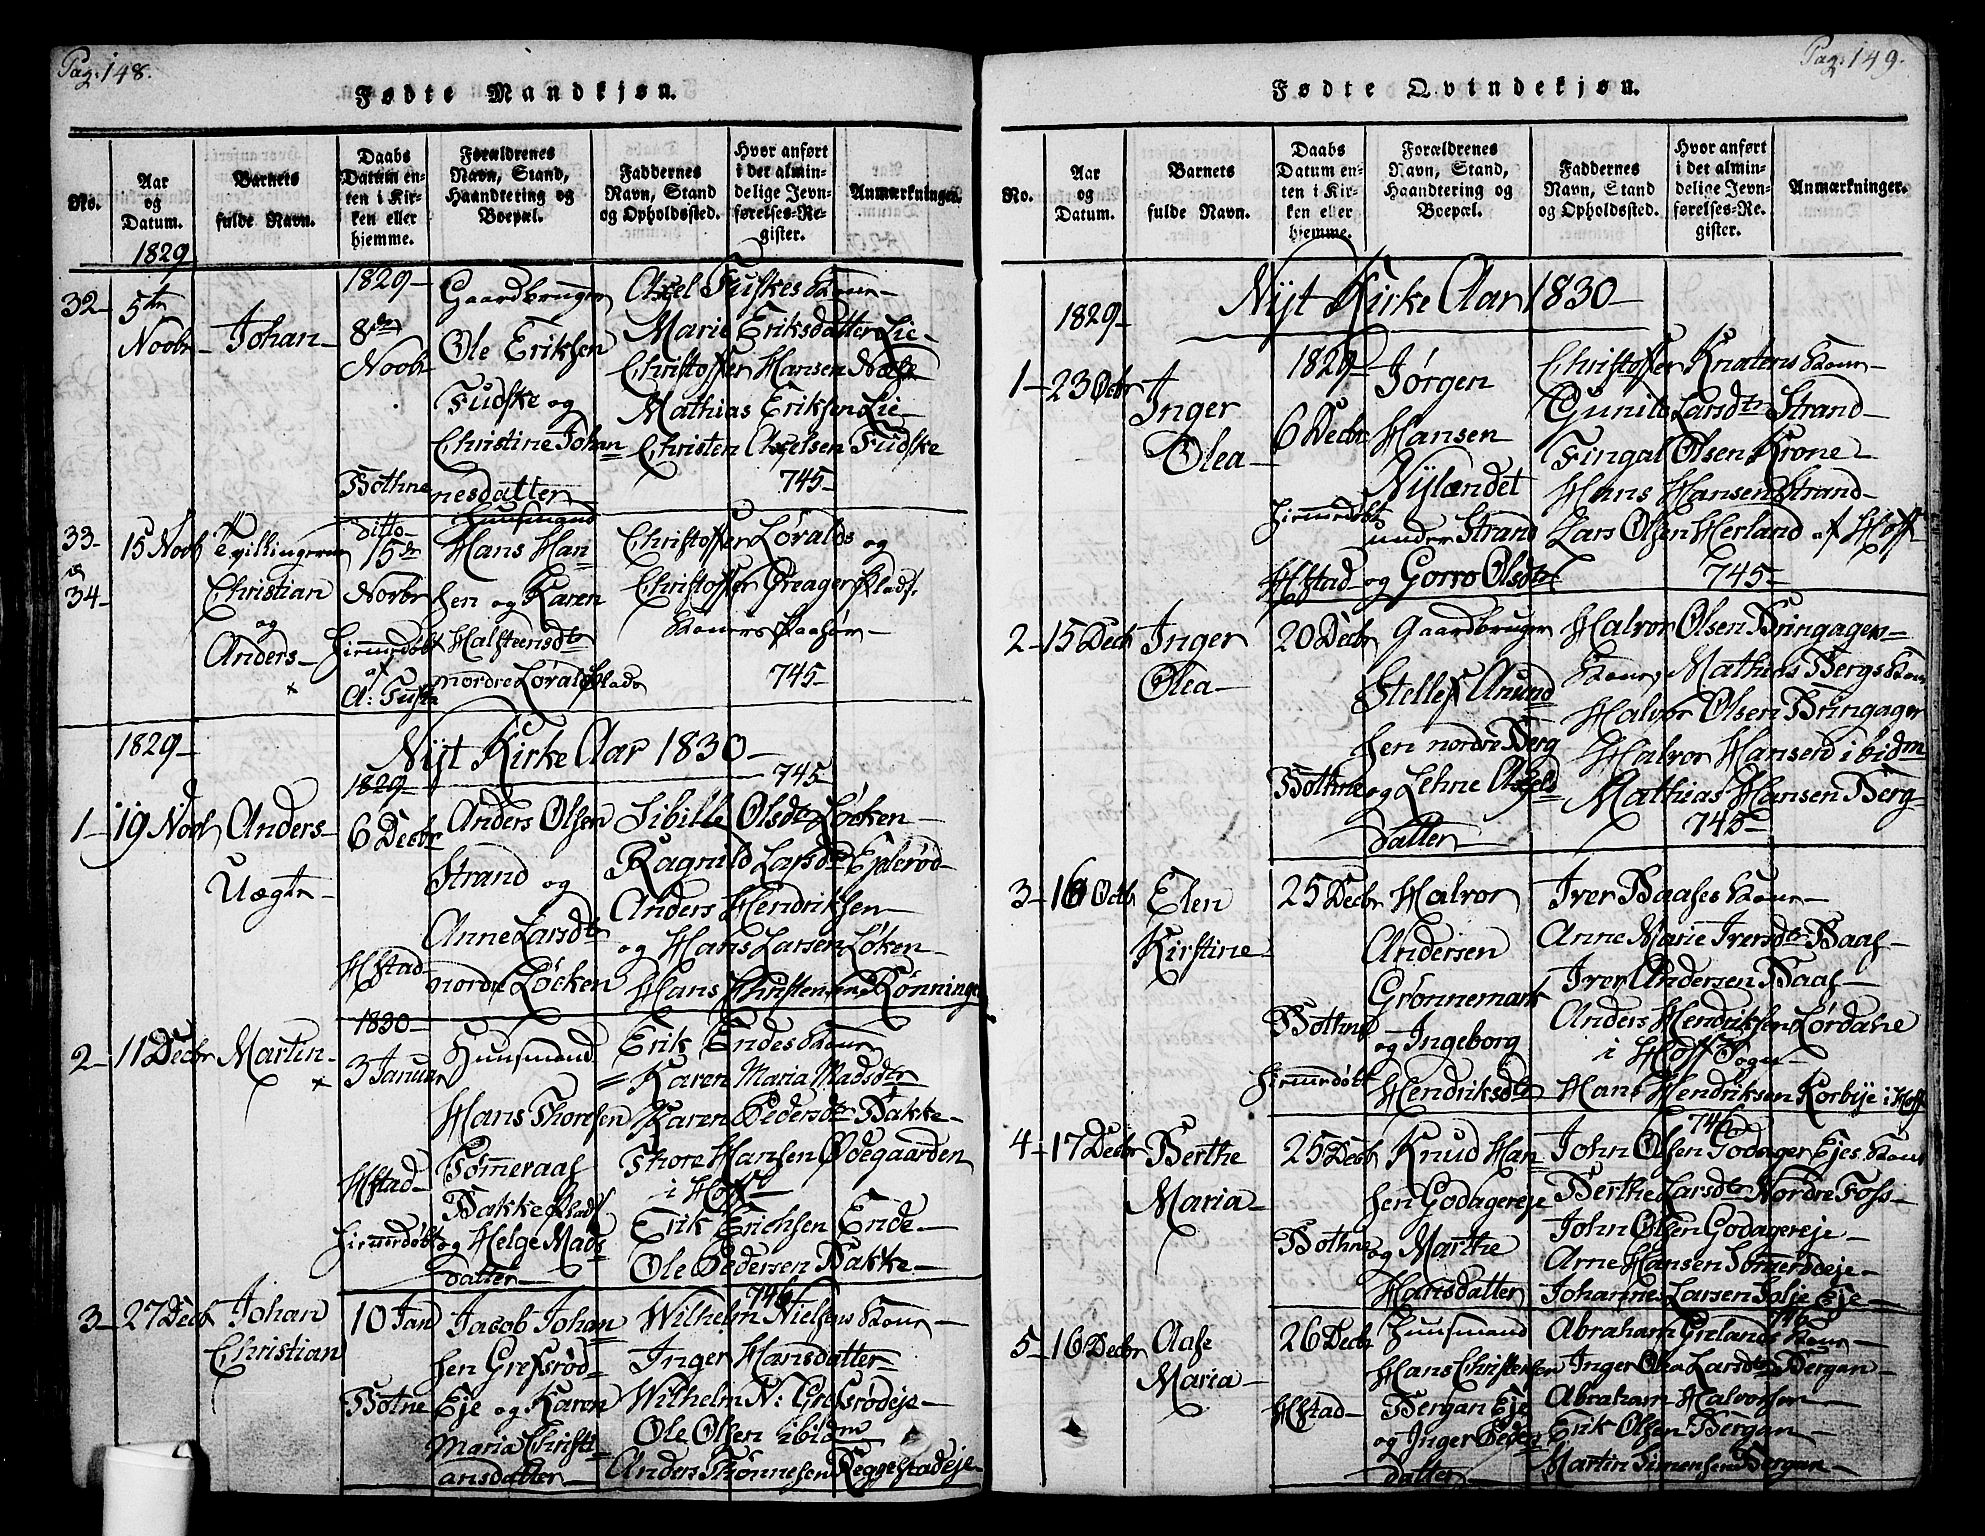 Pag: 148.
Fødte Mandkjøn.
No.
Aar og Datum.
Barnets fulde Navn.
Daabs Datum enten i Kirken eller hjemme.
Forældrenes Navn, Stand, Haandtering og Boepæl.
Faddernes Navn, Stand og Opholdssted.
Hvor anført i det almindelige Jevnførelses-Register.
Anmærkninger.
1829
32-
5te Novbr-
Johan-
1829-
8de Novbr
Bothne
Gaardbruger
Ole Eriksen
Fudske og
Christine Johan=
nesdatter-
Axel Fuskes Kone-
Marie Eriksdatter Lie-
Christoffer Hansen Næss
Mathias Eriksen Lie-
Christen Axelsen Fudske
745-
33- og 34-
15 Novb
Tvillingerne
Christian
og
Anders-
ditto-
15de
Novbr
hiemmedøbt
af
Huusmand
Hans Han=
sen og Karen
Halsteensdtr
nordre Løvalds Plads
Christoffer Løvalds og
Christoffer Greager Plads.
Koner
745-
1829-
Nyt Kirke Aar 1830-
745
1-
19 Novb
Anders-
1829-
6 Decbr
Hfstad-
Anders Olsen
Strand og
Anne Larsdtr
nordre Løcken
Sibille Olsdtr Løcken-
Ragnild Larsdtr Eplerød-
Anders Hendriksen-
og Hans Larsen Løken-
Hans Christensen Rønningen
2-
11 Decbr
Martin-
1830-
3 Januar
Hfstad-
hiemmedøbt
Huusmand
Hans Thoresen
Bakke Plads
og Helge Mads
datter-
Erik Endes Kone
Karen Maria Madsdtr
Karen Pedersdtr Bakke-
Thore Hansen Ødegaarden
i Hoff-
Erik Erichsen Ende-
Ole Pedersen Bakke-
746
3-
27 Decb
Johan
Christian
10 Jan
Botne
Jacob Johan=
sen Grefsrød-
Eje og Karen
Maria Christi=
ansdatter-
Wilhelm Nielsens Kone-
Inger Hansdatter-
Wilhelm N: Grefsrødeje-
Ole Olsen ibidm
Anders Thønnesen Reggestadeje-
Pag: 149.
Fødte Qvindekjøn.
No.
Aar og Datum.
Barnets fulde Navn.
Daabs Datum enten i Kirken eller hjemme.
Forældrenes Navn, Stand, Haandtering og Boepæl.
Faddernes Navn, Stand og Opholdssted.
Hvor anført i det almindelige Jevnførelses-Register.
Anmærkninger.
Nyt Kirke Aar 1830-
1829-
1-
23 Octbr
Inger
Olea-
1829-
6 Decbr
hiemmedøbt
Hfstad
Jørgen
Hansen
Nylændet
under Strand
og Gorro Olsdtr
Christoffer Knatens Kone-
Gunild Larsdtr Strand-
Fingal Olsen Krone-
Hans Hansen Strand-
Lars Olsen Herland af Hoff
745-
2-
15 Decb
Inger
Olea-
20 Decbr
Bothne
Gaardbruger
Stellef Amund
sen nordre Berg
og Lehne Axels
datter-
Halvor Olsen Bringager-
Kone, Mathias Bergs Kone
Halvor Olsen Bringager
Halvor Hansen ibidm
Mathias Hansen Berg-
745-
3-
16 Octb
Elen
Kirstine-
25 Decbr
Bothne
hiemmedøbt
Halvor
Andersen
Grønnemark
og Ingeborg
Hendriksdtr
Iver Baases Kone-
Anne Marie Iversdtr Baas-
Iver Andersen Baas-
Anders Hendriksen
i Hoff Sogn-
Hans Hendriksen Korbye i Hoff
746
4-
17 Decbr
Berthe
Maria-
25 Decb
Bothne
Knud Han=
sen Godagereje
og Marthe
Hansdatter
John Olsen Godager Ejes Kone
Berthe Larsdtr Nordre Foss-
John Olsen Godagereje-
Arne Hansen Sømerødeje-
Johannes Larsen Solje Eje-
746
5-
16 Decbr
Aase
Maria-
26 Decb
Hfstad-
Huusmand
Hans Christensen
Bergan Eje
og Inger Peders
datter-
Abraham Grelands Kone-
Inger Olea Larsdtr Bergan-
Abraham Halvorsen-
Erik Olsen Bergan-
Martin Simensen Bergan-